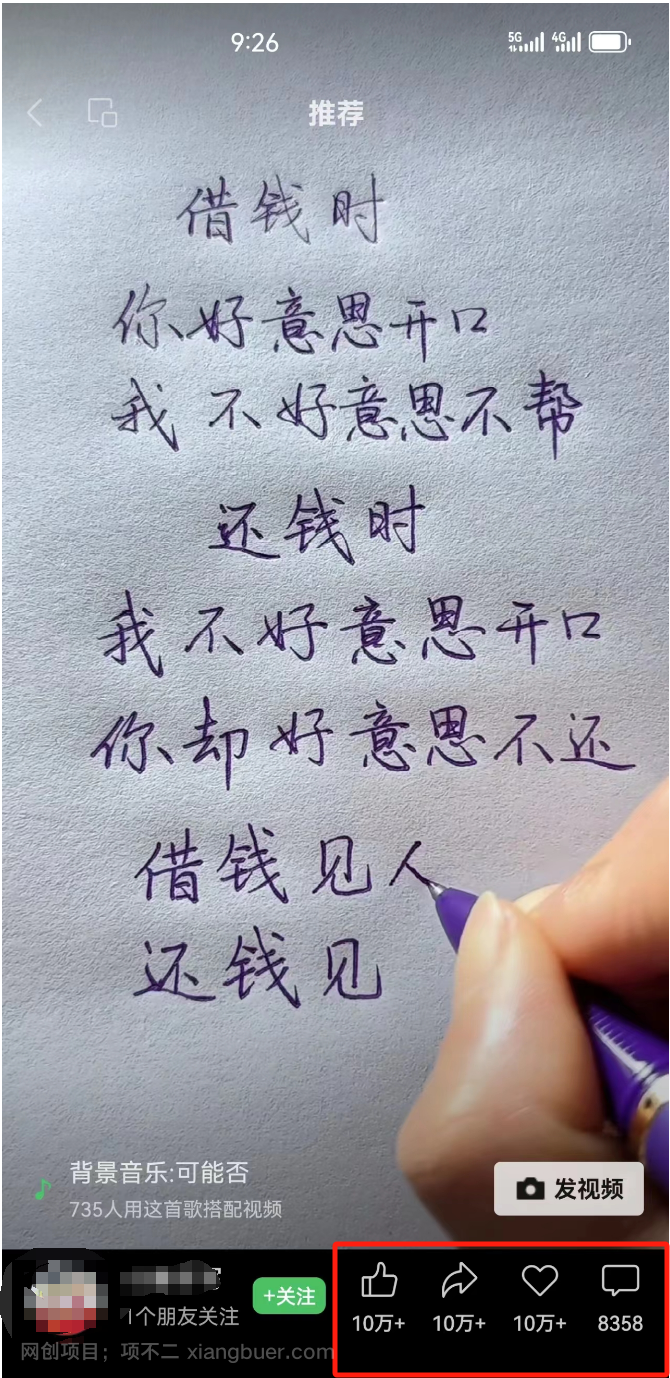 9:26
5G 4G
推荐
借钱时
你好意思开口
我不好意思不帮
还钱时
我不好意思开口
你却好意思不还
借钱见人
还钱见
背景音乐:可能否
735人用这首歌搭配视频
发视频
1个朋友关注
+关注
10万+ 10万+ 10万+ 8358
网创项目；项不二 xiangbuer.com